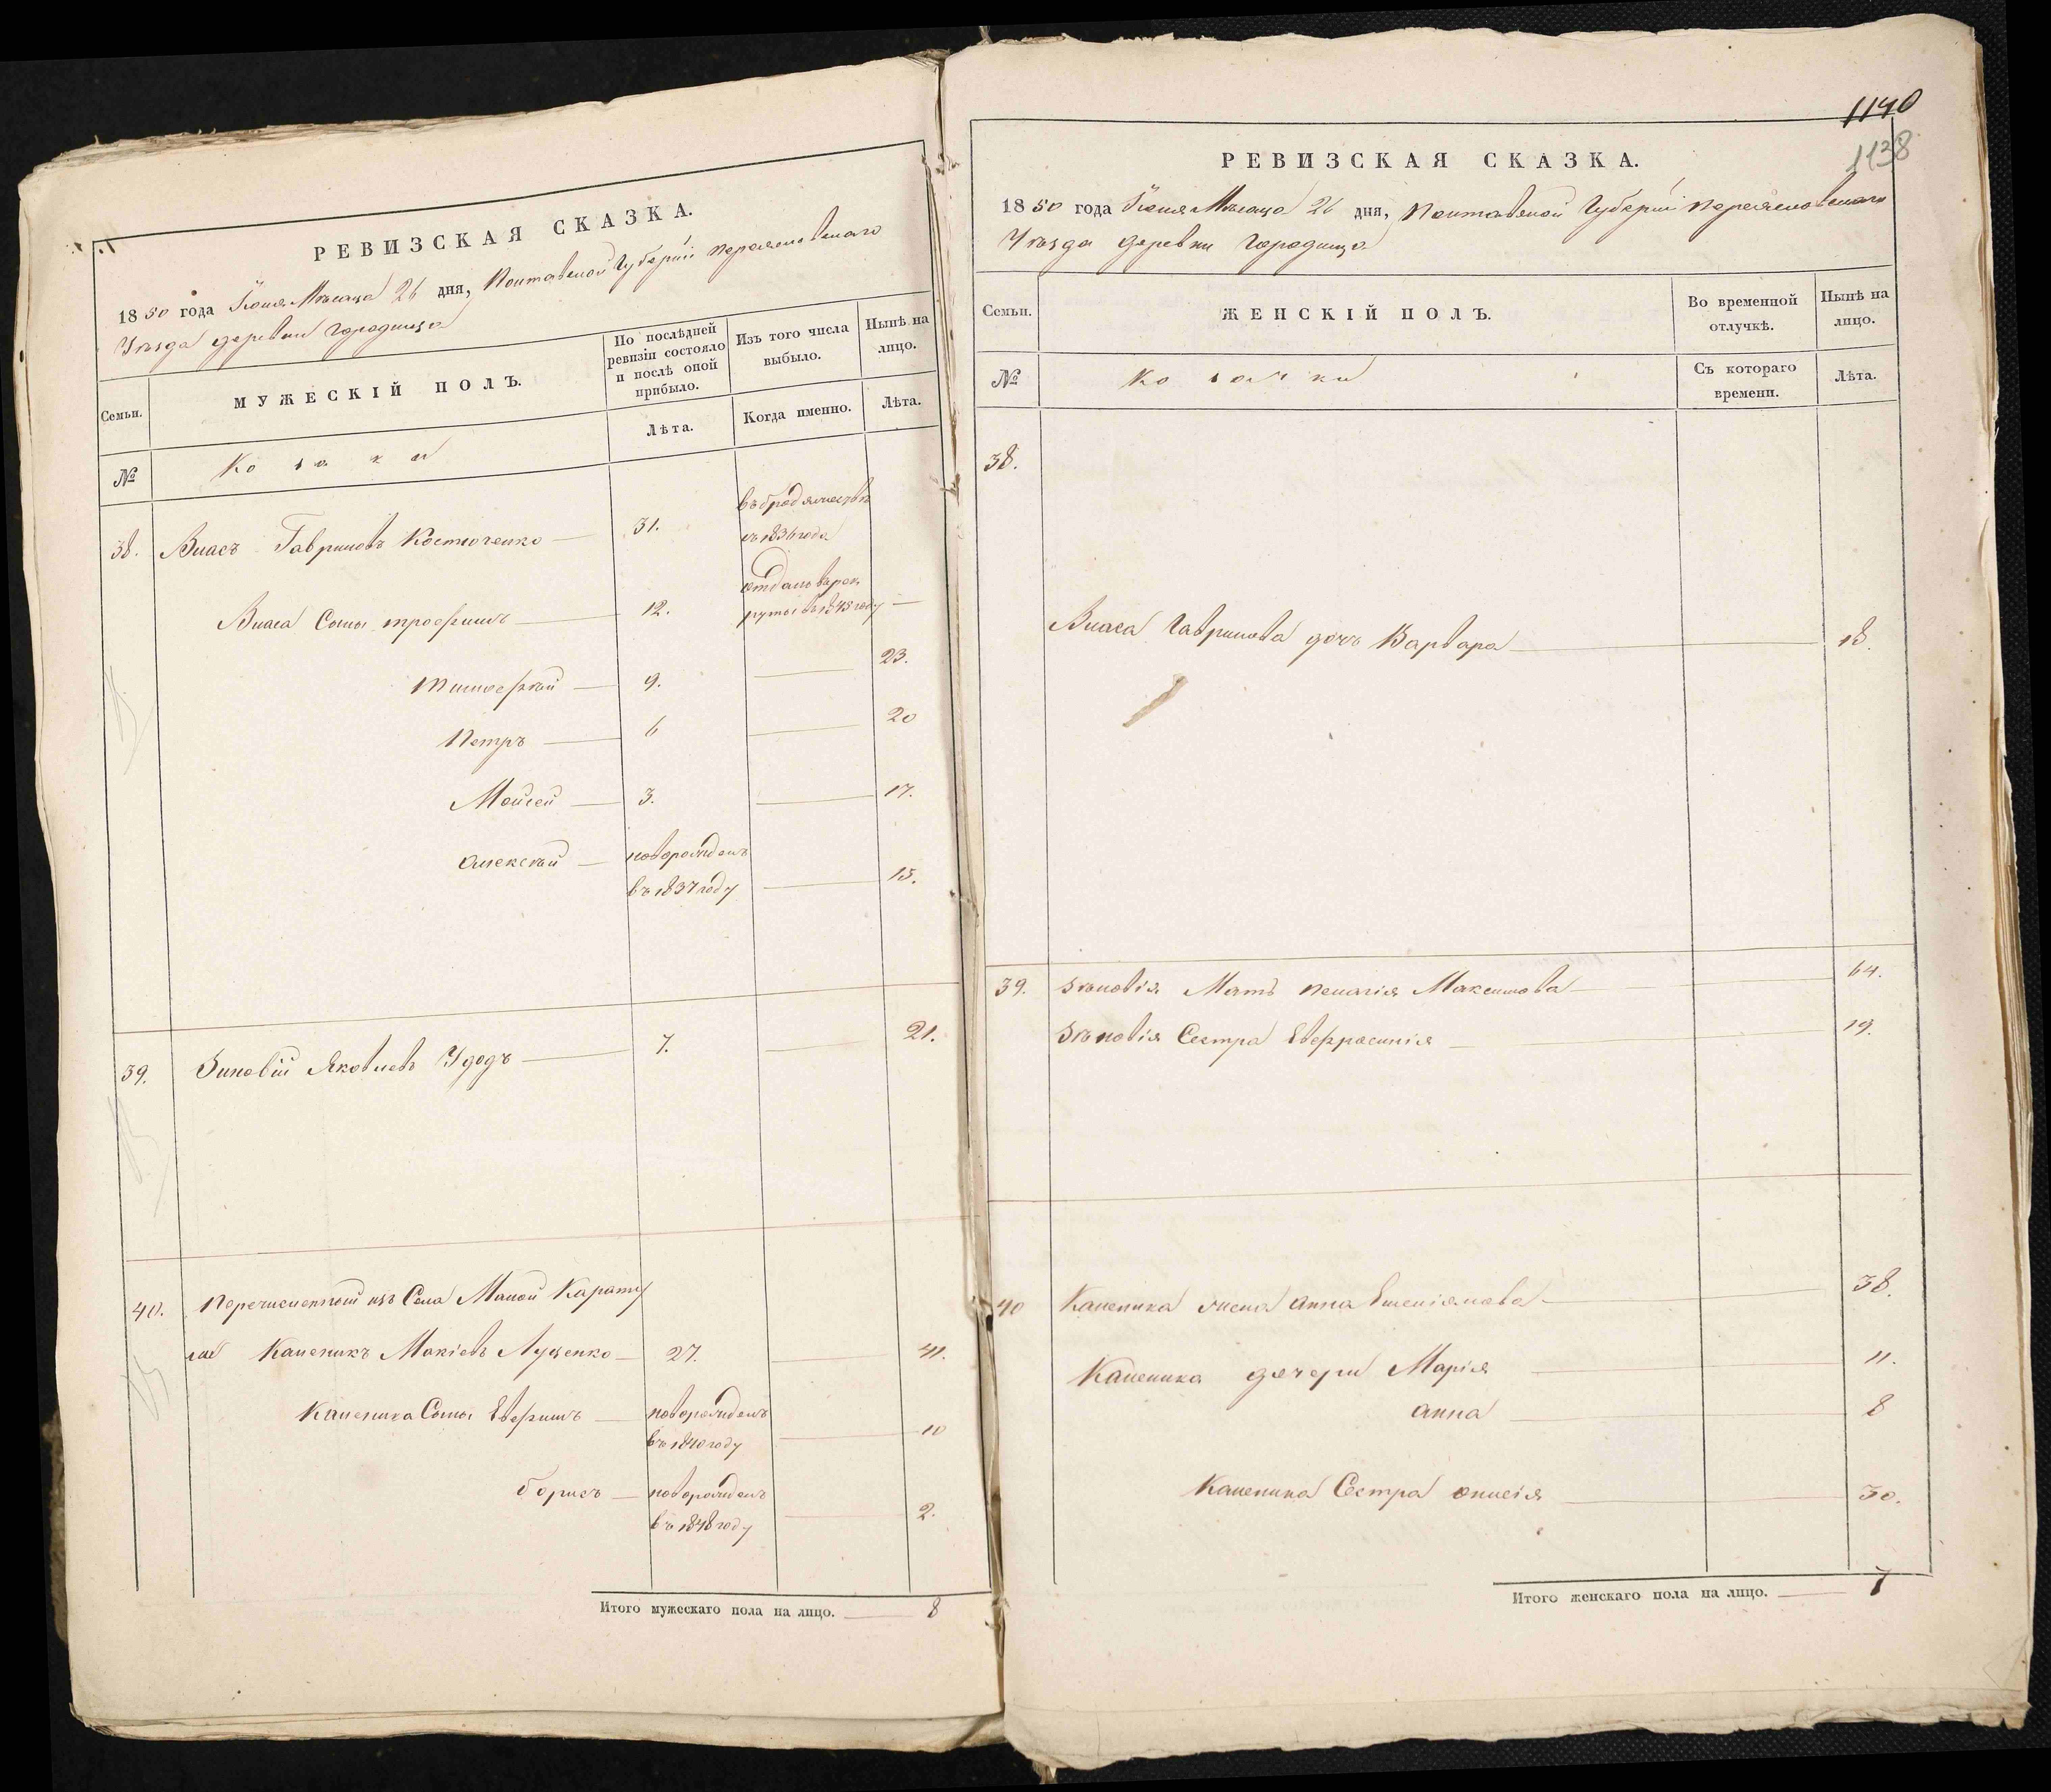 РЕВИЗСКАЯ СКАЗКА.
1850 года Іюня Мѣсяца 26 дня, Полтавской Губерніи Переясловскаго
Уѣзда деревни Городища
Семьи.
МУЖЕСКІЙ ПОЛЪ.
По послѣдней ревизіи состояло и послѣ оной прибыло.
Изъ того числа выбыло.
Нынѣ на лицо.
Лѣта.
Когда именно.
Лѣта.
№
Козаки
38. Власъ Гавриловъ Костюченко 31. въ бродяжествѣ съ 1836 года
Власа Сыны трофимъ 12. отданъ въ рекруты въ 1845 году
тимофѣй 9. 23.
Петръ 6 20
Мойсей 3. 17.
алексѣй новорожденъ 13.
въ 1837 году
39. Зиновій Яковлевъ Удодъ 7. 21.
40. Перечисленный изъ Села Малой Карату
ля Каленикъ Мокіевъ Луценко 27. 41.
Каленика Сыны Евфимъ новорожденъ 10
въ 1840 году
борисъ новорожденъ 2.
въ 1848 году
Итого мужескаго пола на лицо. 8
1140
1138
РЕВИЗСКАЯ СКАЗКА.
1850 года Іюня Мѣсяца 26 дня, Полтавской Губерніи Переясловскаго
Уѣзда деревни Городища
Семьи.
ЖЕНСКІЙ ПОЛЪ.
Во временной отлучкѣ.
Нынѣ на лицо.
№
Козачки
Съ котораго времени.
Лѣта.
38.
Власа Гаврилова дочь Варвара 18.
39. Зѣновія Мать пелагія Максимова 64.
Зѣновія Сестра Евфросинія 19.
40 Каленика жена анна Емеліянова 38.
Каленика дочери Марія 11.
анна 8
Каленика Сестра 30.
Итого женскаго пола на лицо. 7